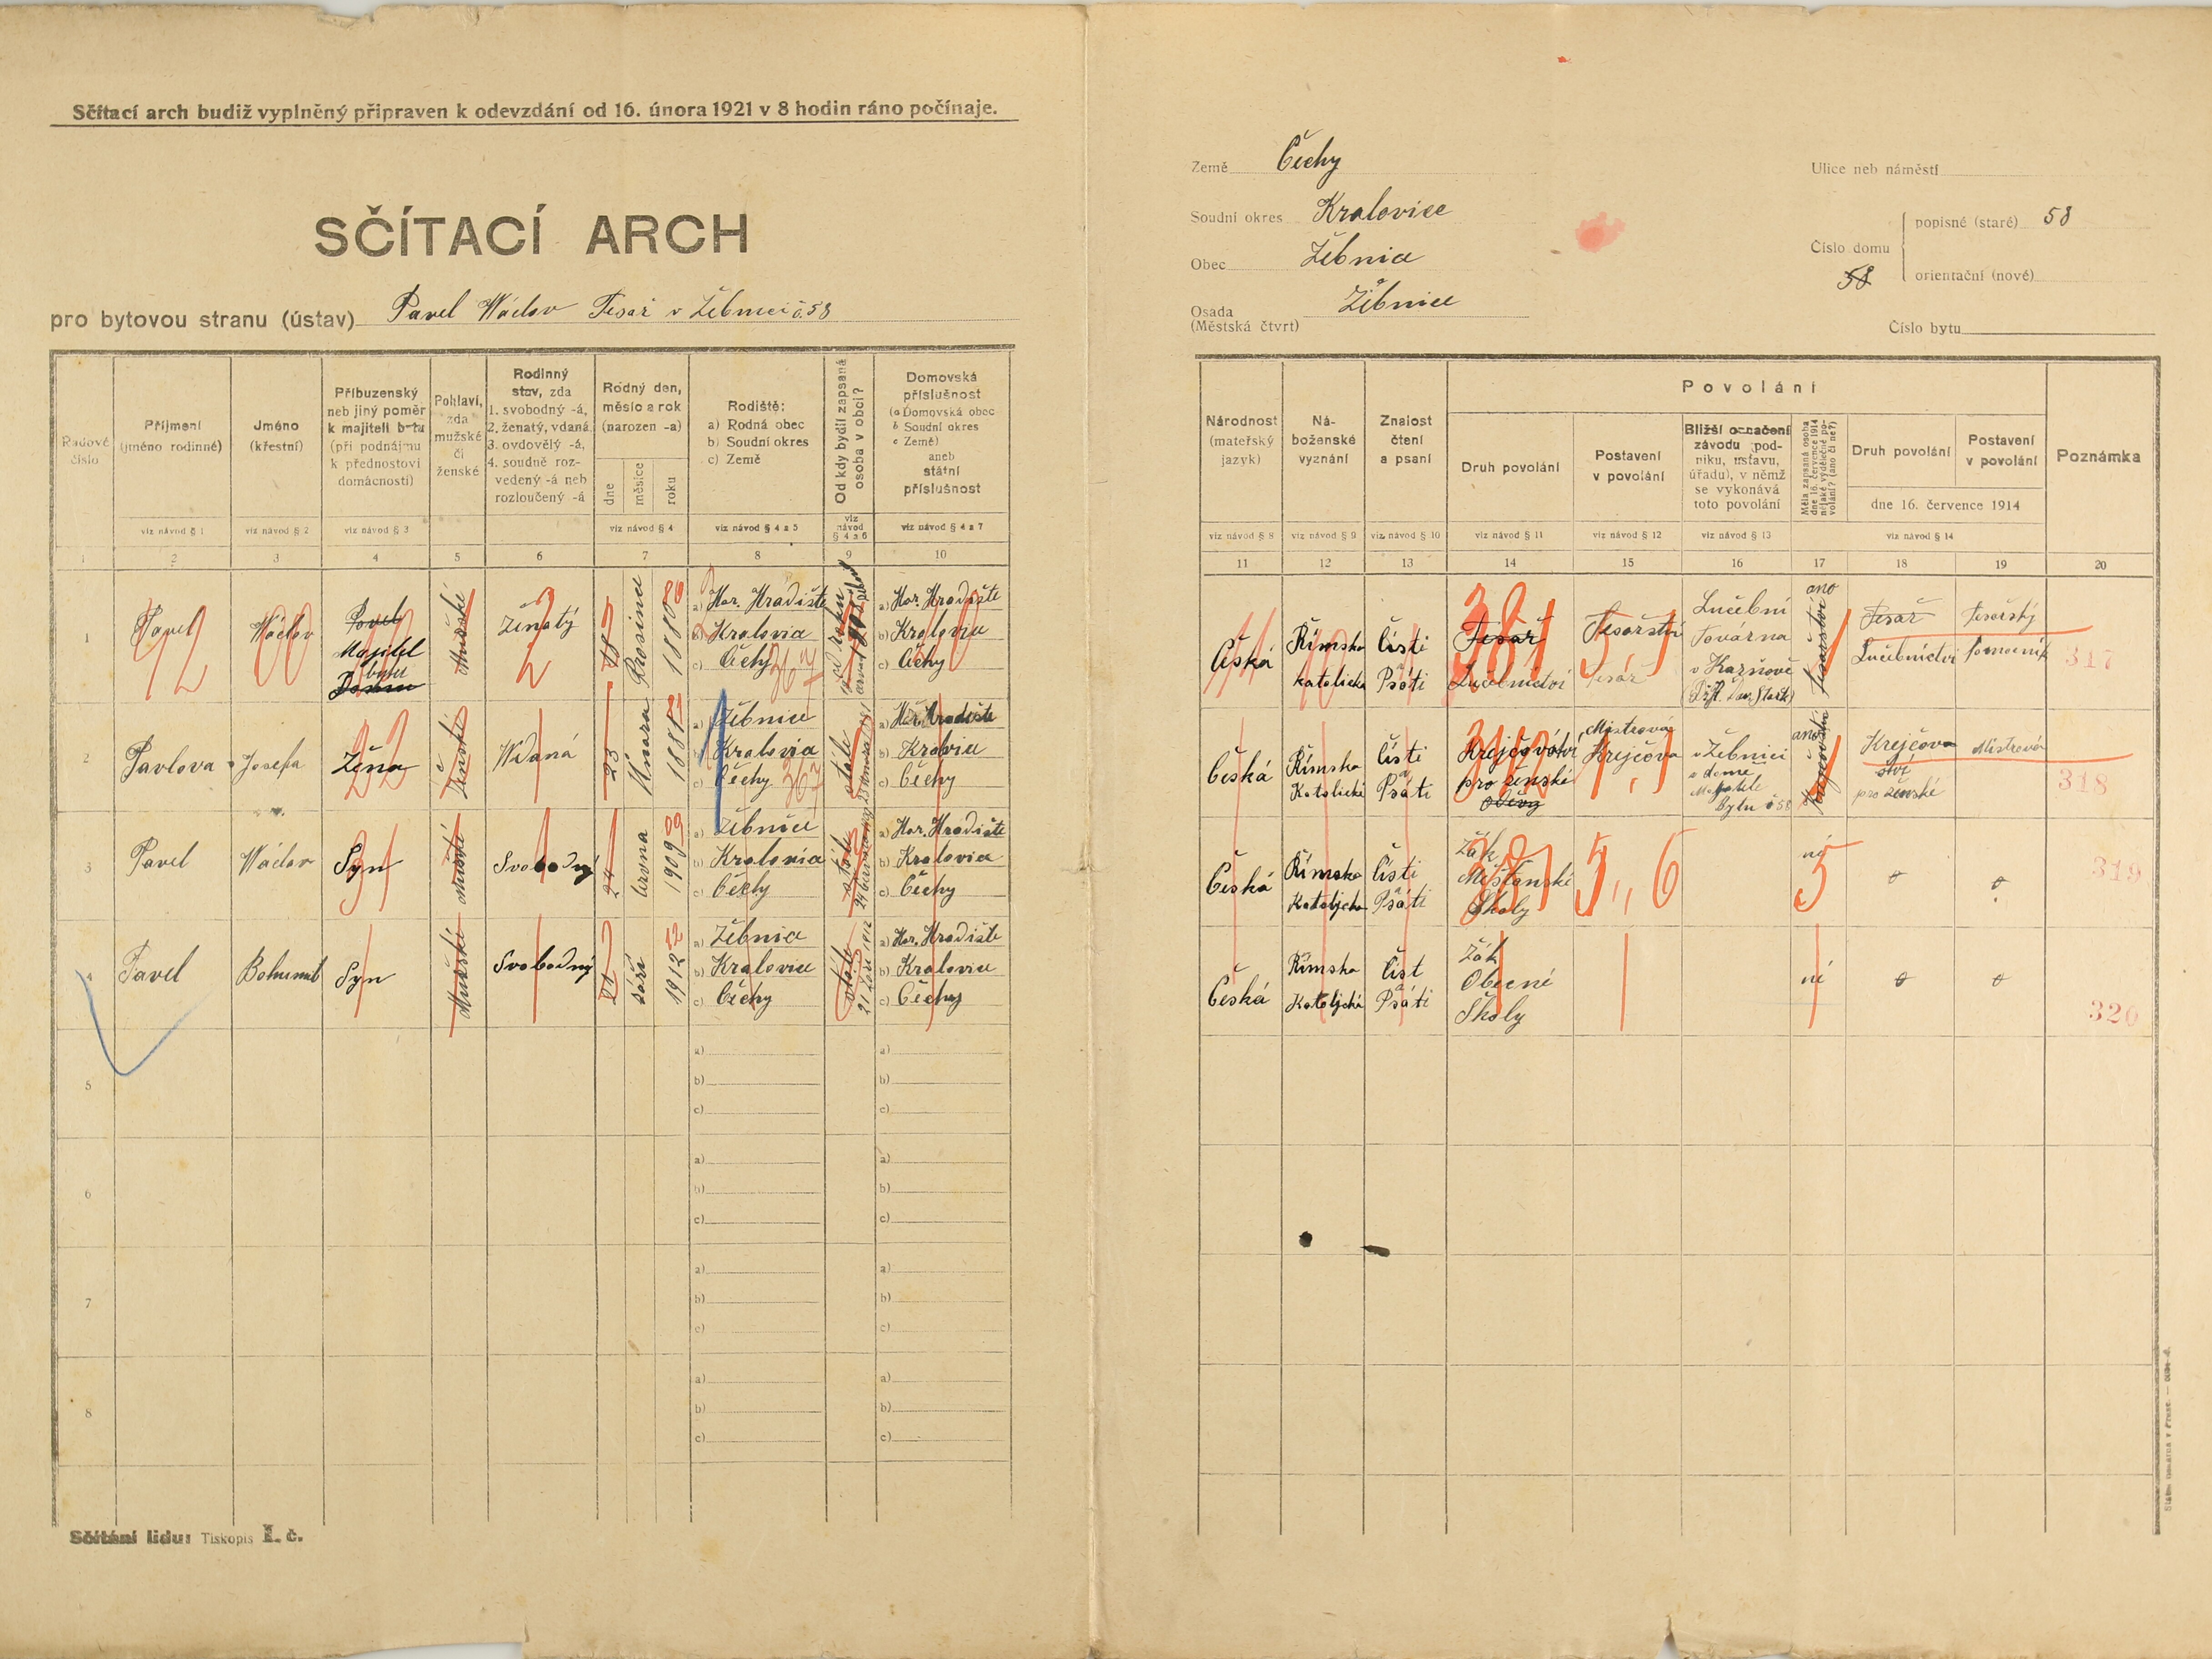 Sčítací arch budiž vyplněný připraven k odevzdání od 16. února 1921 v 8 hodin ráno počínaje.
SČÍTACÍ ARCH
pro bytovou stranu (ústav) Pavel Wáclav Tesař v Žebnici č 58
Země Čechy
Soudní okres Kralovice
Obec Žebnice
Osada Žebnice
(Městská čtvrť)
Ulice neb náměstí
Číslo domu
popisné (staré) 58
58
orientační (nové)
Číslo bytu
Řadové číslo
Příjmení
(jméno rodinné)
viz návod § 1
Jméno
(křestní)
viz návod § 2
Příbuzenský
neb jiný poměr
k majiteli bytu
(při podnájmu
k přednostovi
domácnosti)
viz návod § 3
Pohlaví,
zda
mužské
či
ženské
Rodinný
stav, zda
1. svobodný -á,
2. ženatý, vdaná,
3. ovdovělý -á,
4. soudně roz-
vedený -á neb
rozloučený -á
Rodný den,
měsíc a rok
(narozen -a)
dne
měsíce
roku
viz návod § 4
Rodiště:
a) Rodná obec
b) Soudní okres
c) Země
viz návod § 4 a 5
Od kdy bydlí zapsaná
osoba v obci?
viz
návod
§ 4 a 6
Domovská
příslušnost
(a Domovská obec
b Soudní okres
c Země)
aneb
státní
příslušnost
viz návod § 4 a 7
1 2 3 4 5 6 7 8 9 10
Národnost
(mateřský
jazyk)
viz návod § 8
Ná-
boženské
vyznání
viz návod § 9
Znalost
čtení
a psaní
viz návod § 10
Povolání
Druh povolání
viz návod § 11
Postavení
v povolání
viz návod § 12
Bližší označení
závodu (pod-
niku, ústavu,
úřadu), v němž
se vykonává
toto povolání
viz návod § 13
Měla zapsaná osoba
dne 16. července 1914
nějaké výdělečné po-
volání? (ano či ne?)
Druh povolání
Postavení
v povolání
dne 16. července 1914
viz návod § 14
Poznámka
11 12 13 14 15 16 17 18 19 20
1
Pavel
Wáclav
Pavel
Majitel
bytu
Mužské
Ženatý
2
18
Prosince
1880
80
a) Hor. Hradiště
b) Kralovice
c) Čechy
367
a) Hor. Hradiště
b) Kralovice
c) Čechy
Česká
Římsko
katolické
Čísti
a
Psáti
Tesař
Lučebnictví
381
Tesařství
Tesář
Lučební
Továrna
v Kaznově
ano
Tesařství
Tesař
Lučebnictví
Tesařský
Pomocník
317
2
Pavlova
Josefa
Žena
Ženské
Wdaná
23
Února
1881
a) Žebnice
b) Kralovice
c) Čechy
367
stále
a) Hor. Hradiště
b) Kralovice
c) Čechy
Česká
Římsko
Katolické
Čísti
a
Psáti
Krejčovství
pro ženské
oděvy
Mistrová
Krejčova
v Žebnici
v domě
Majitele
Bytu č 58
ano
Krejčovství
Krejčov
ství
pro ženské
Mistrová
318
3
Pavel
Wáclav
Syn
31
Mužské
Svobodný
24
června
1909
09
a) Žebnice
b) Kralovice
c) Čechy
stále
a) Hor. Hradiště
b) Kralovice
c) Čechy
Česká
Římsko
Katolické
Čísti
a
Psáti
Žák
Měšťanské
Školy
381
5,, 6
né
5
o
o
319
4
Pavel
Bohumil
Syn
Mužské
Svobodný
21
září
1912
12
a) Žebnice
b) Kralovice
c) Čechy
stále
21 Září 1912
a) Hor. Hradiště
b) Kralovice
c) Čechy
Česká
Římsko
Katolické
Číst
a
Psáti
Žák
Obecné
Školy
né
o
o
320
5
a)
b)
c)
a)
b)
c)
6
a)
b)
c)
a)
b)
c)
7
a)
b)
c)
a)
b)
c)
8
a)
b)
c)
a)
b)
c)
Sčítání lidu: Tiskopis I. č.